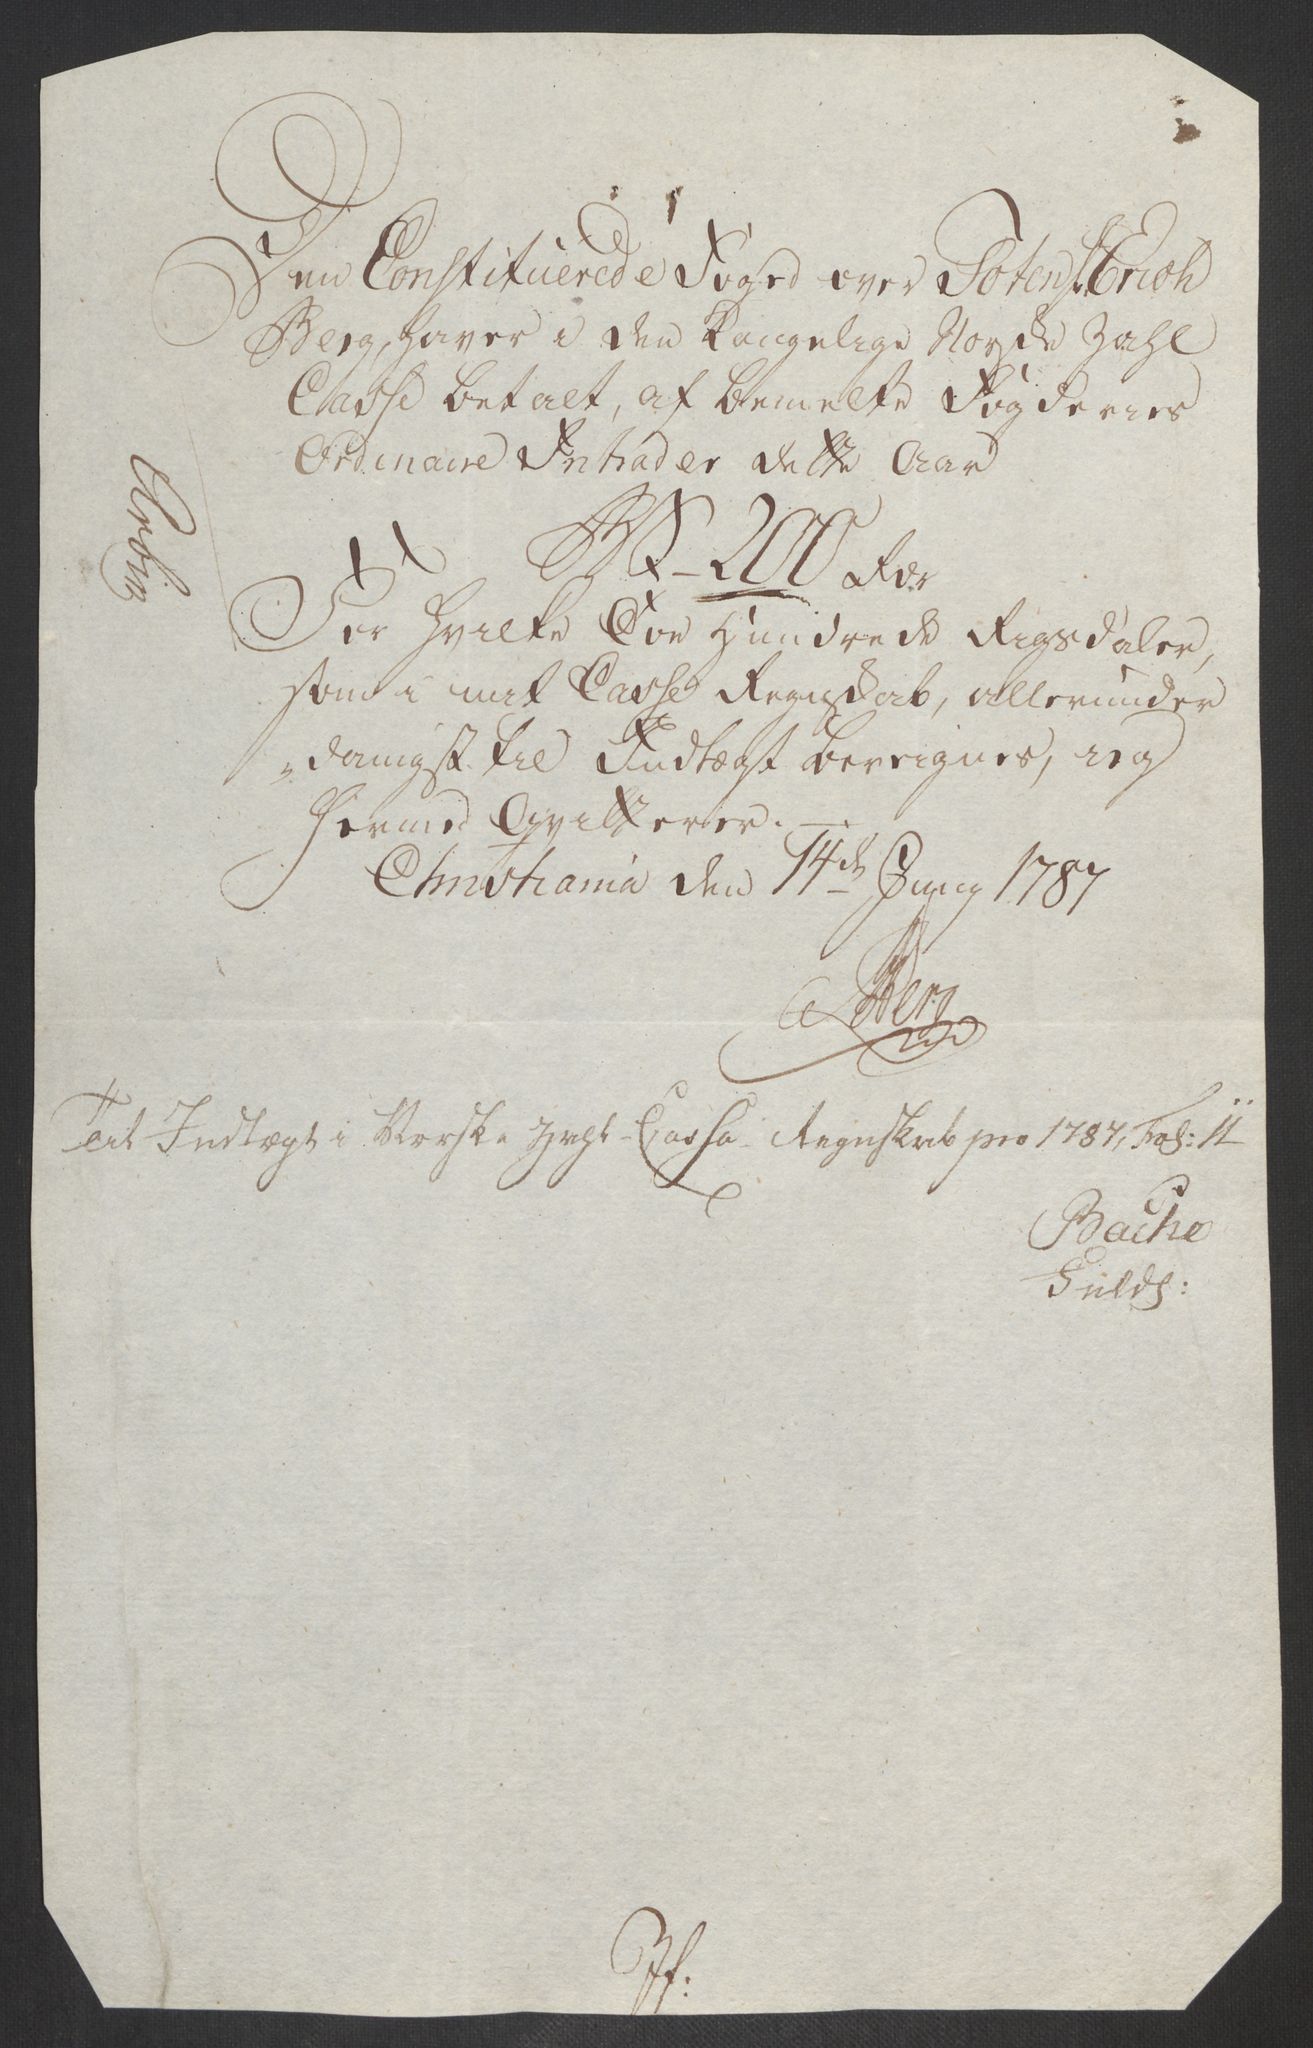 Den Constituerede Foged over Toten Sr Erich
Berg, haver i den Kongelige Norske Zahl
Casse betalt, af bemelte Fogderies
Ordinaire Intrader dette Aar
200 Rdr
For hvilke Toe Hundrede Rigsdaler,
som i mit Casse Regnskab, allerunder
„danigst til Indtægt bereignes, ieg
hermed Qvitterer. —
Christiania den 14de Juny 1787
Berg
Til Indtægt i Norske Zahl-Cassa-Regnskab pro 1787, Fol: 11
Bache
Guldb: